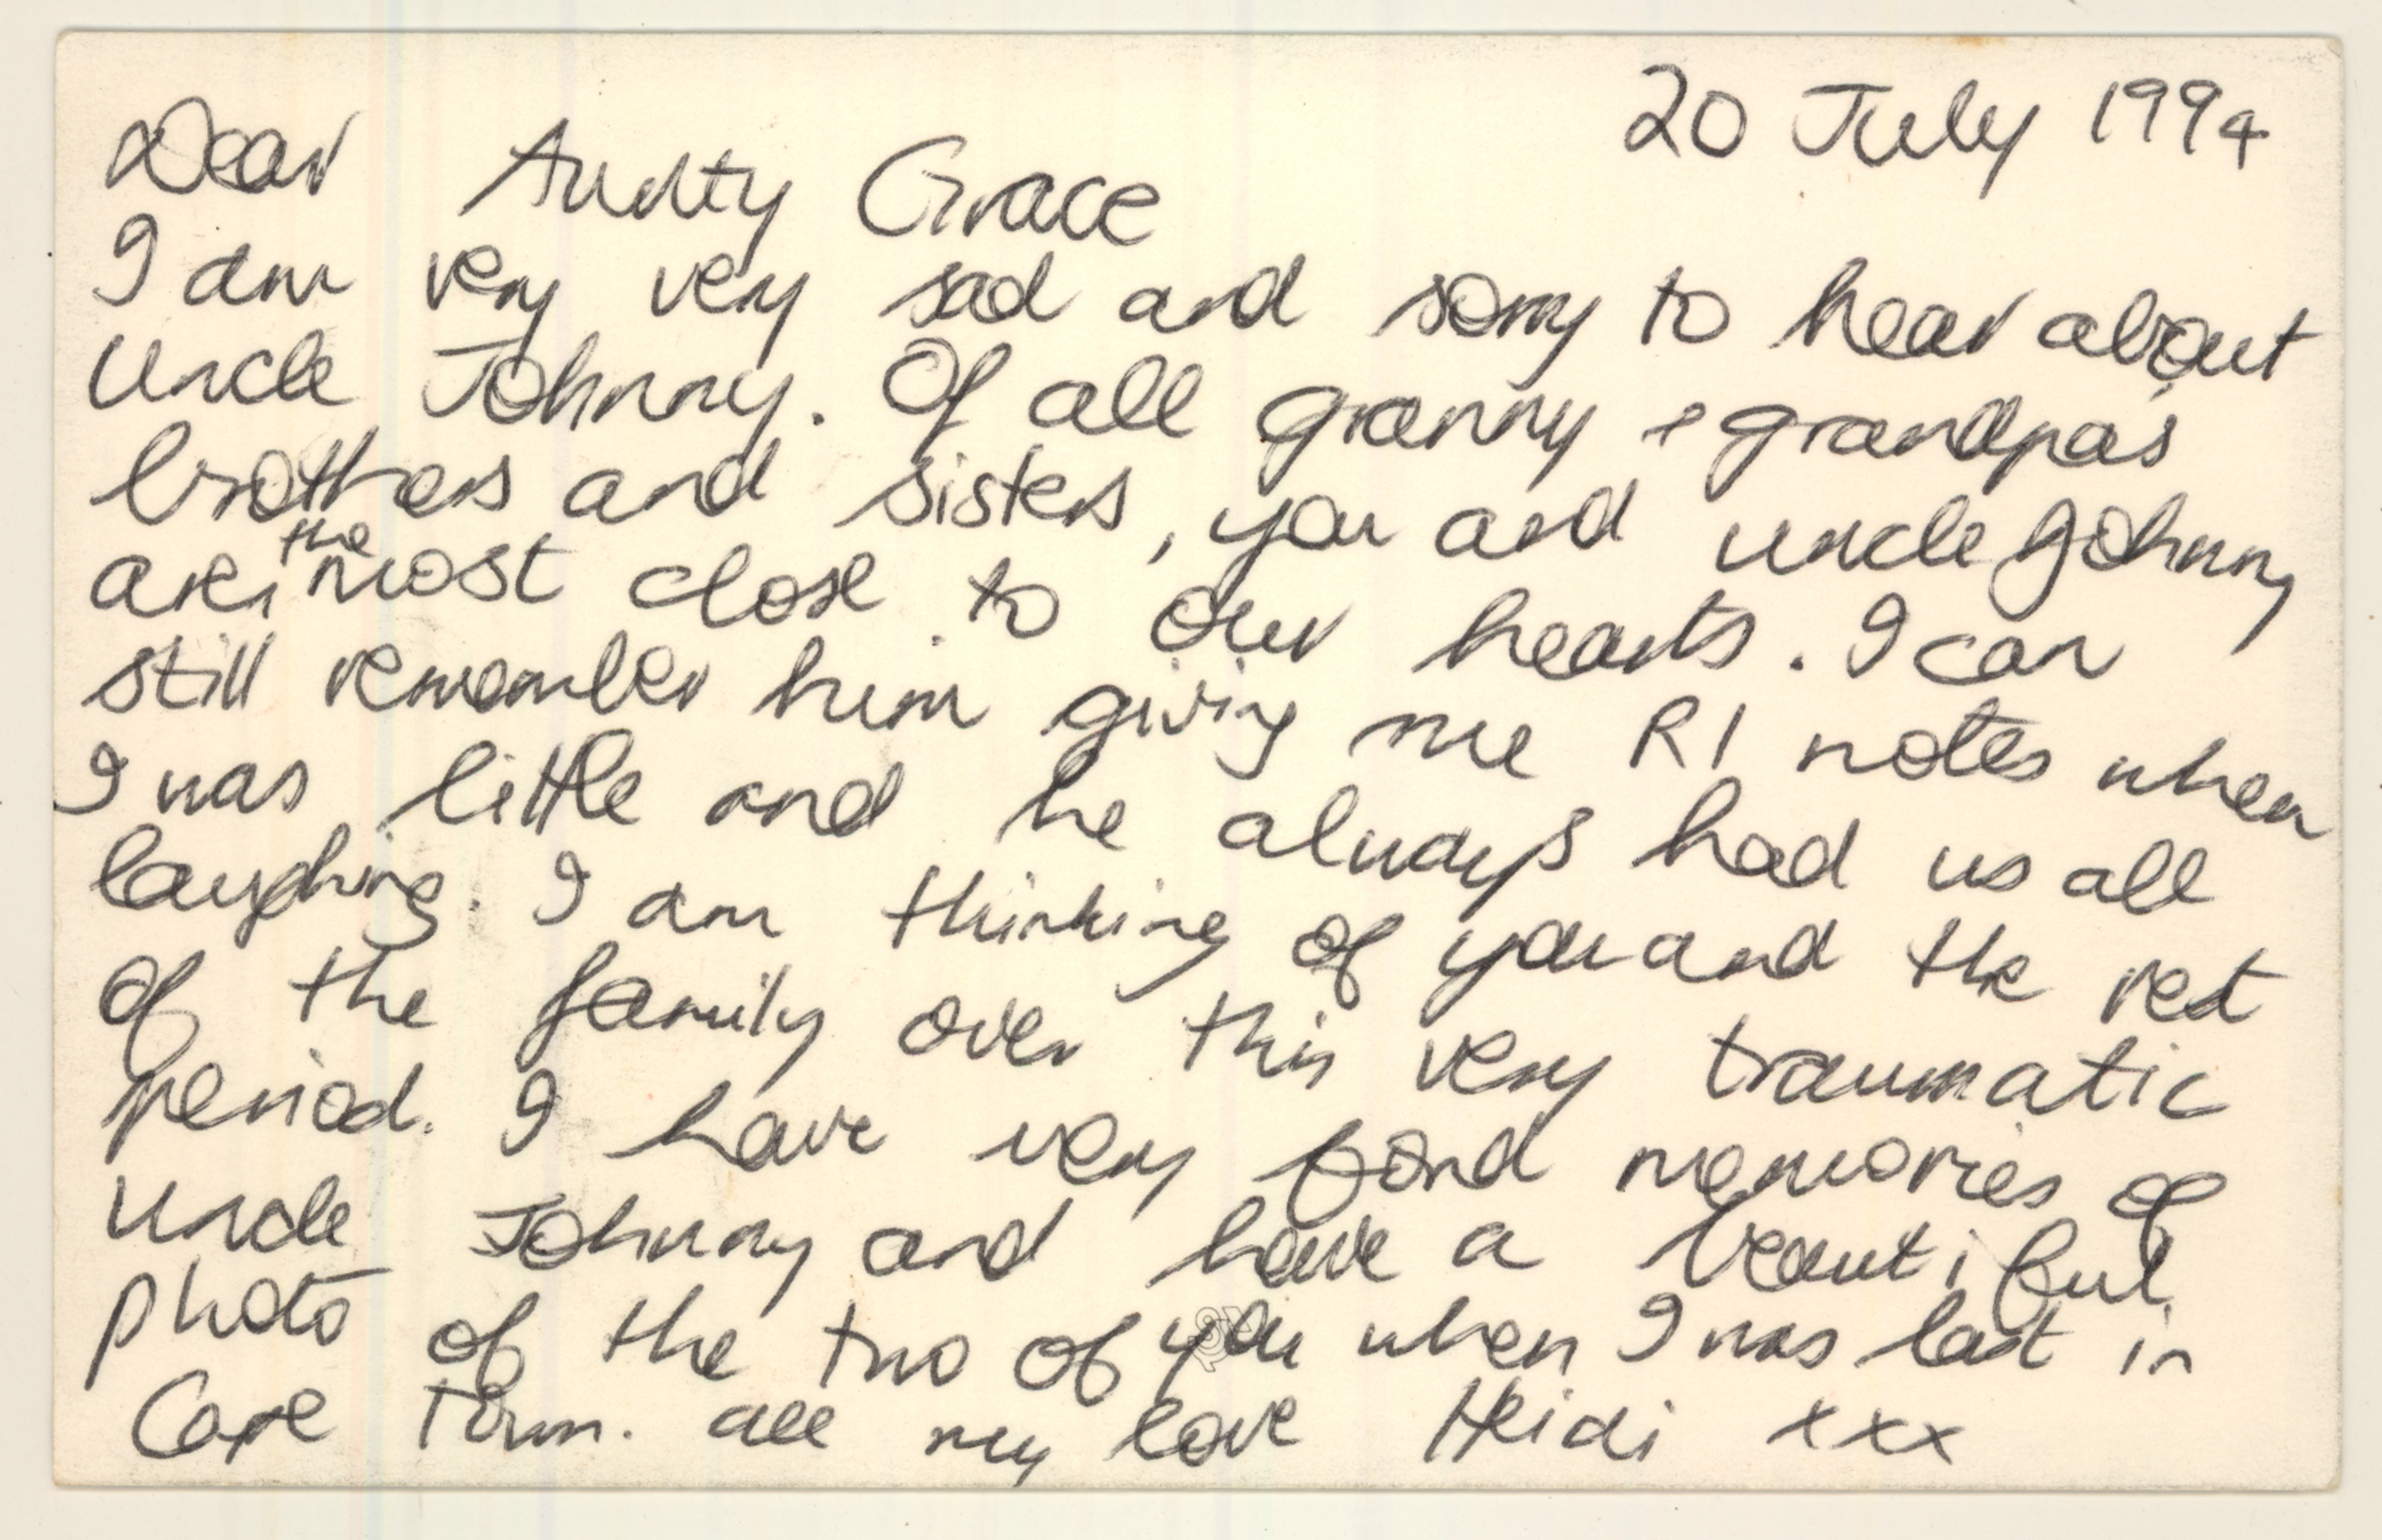 20 July 1994
Dear Aunty Grace
I am very very sad and sorry to hear about
Uncle Johnny. Of all granny + grandpa's
brothers and sisters, you and uncle Johnny
are the most close to our hearts. I can
still remember him giving me R1 notes when
I was little and he always had us all
laughing. I am thinking of you and the rest
of the family over this very traumatic
period. I have very fond memories of
Uncle Johnny and have a beautiful
photo of the two of you when I was last in
Cape Town. all my love Heidi xxx